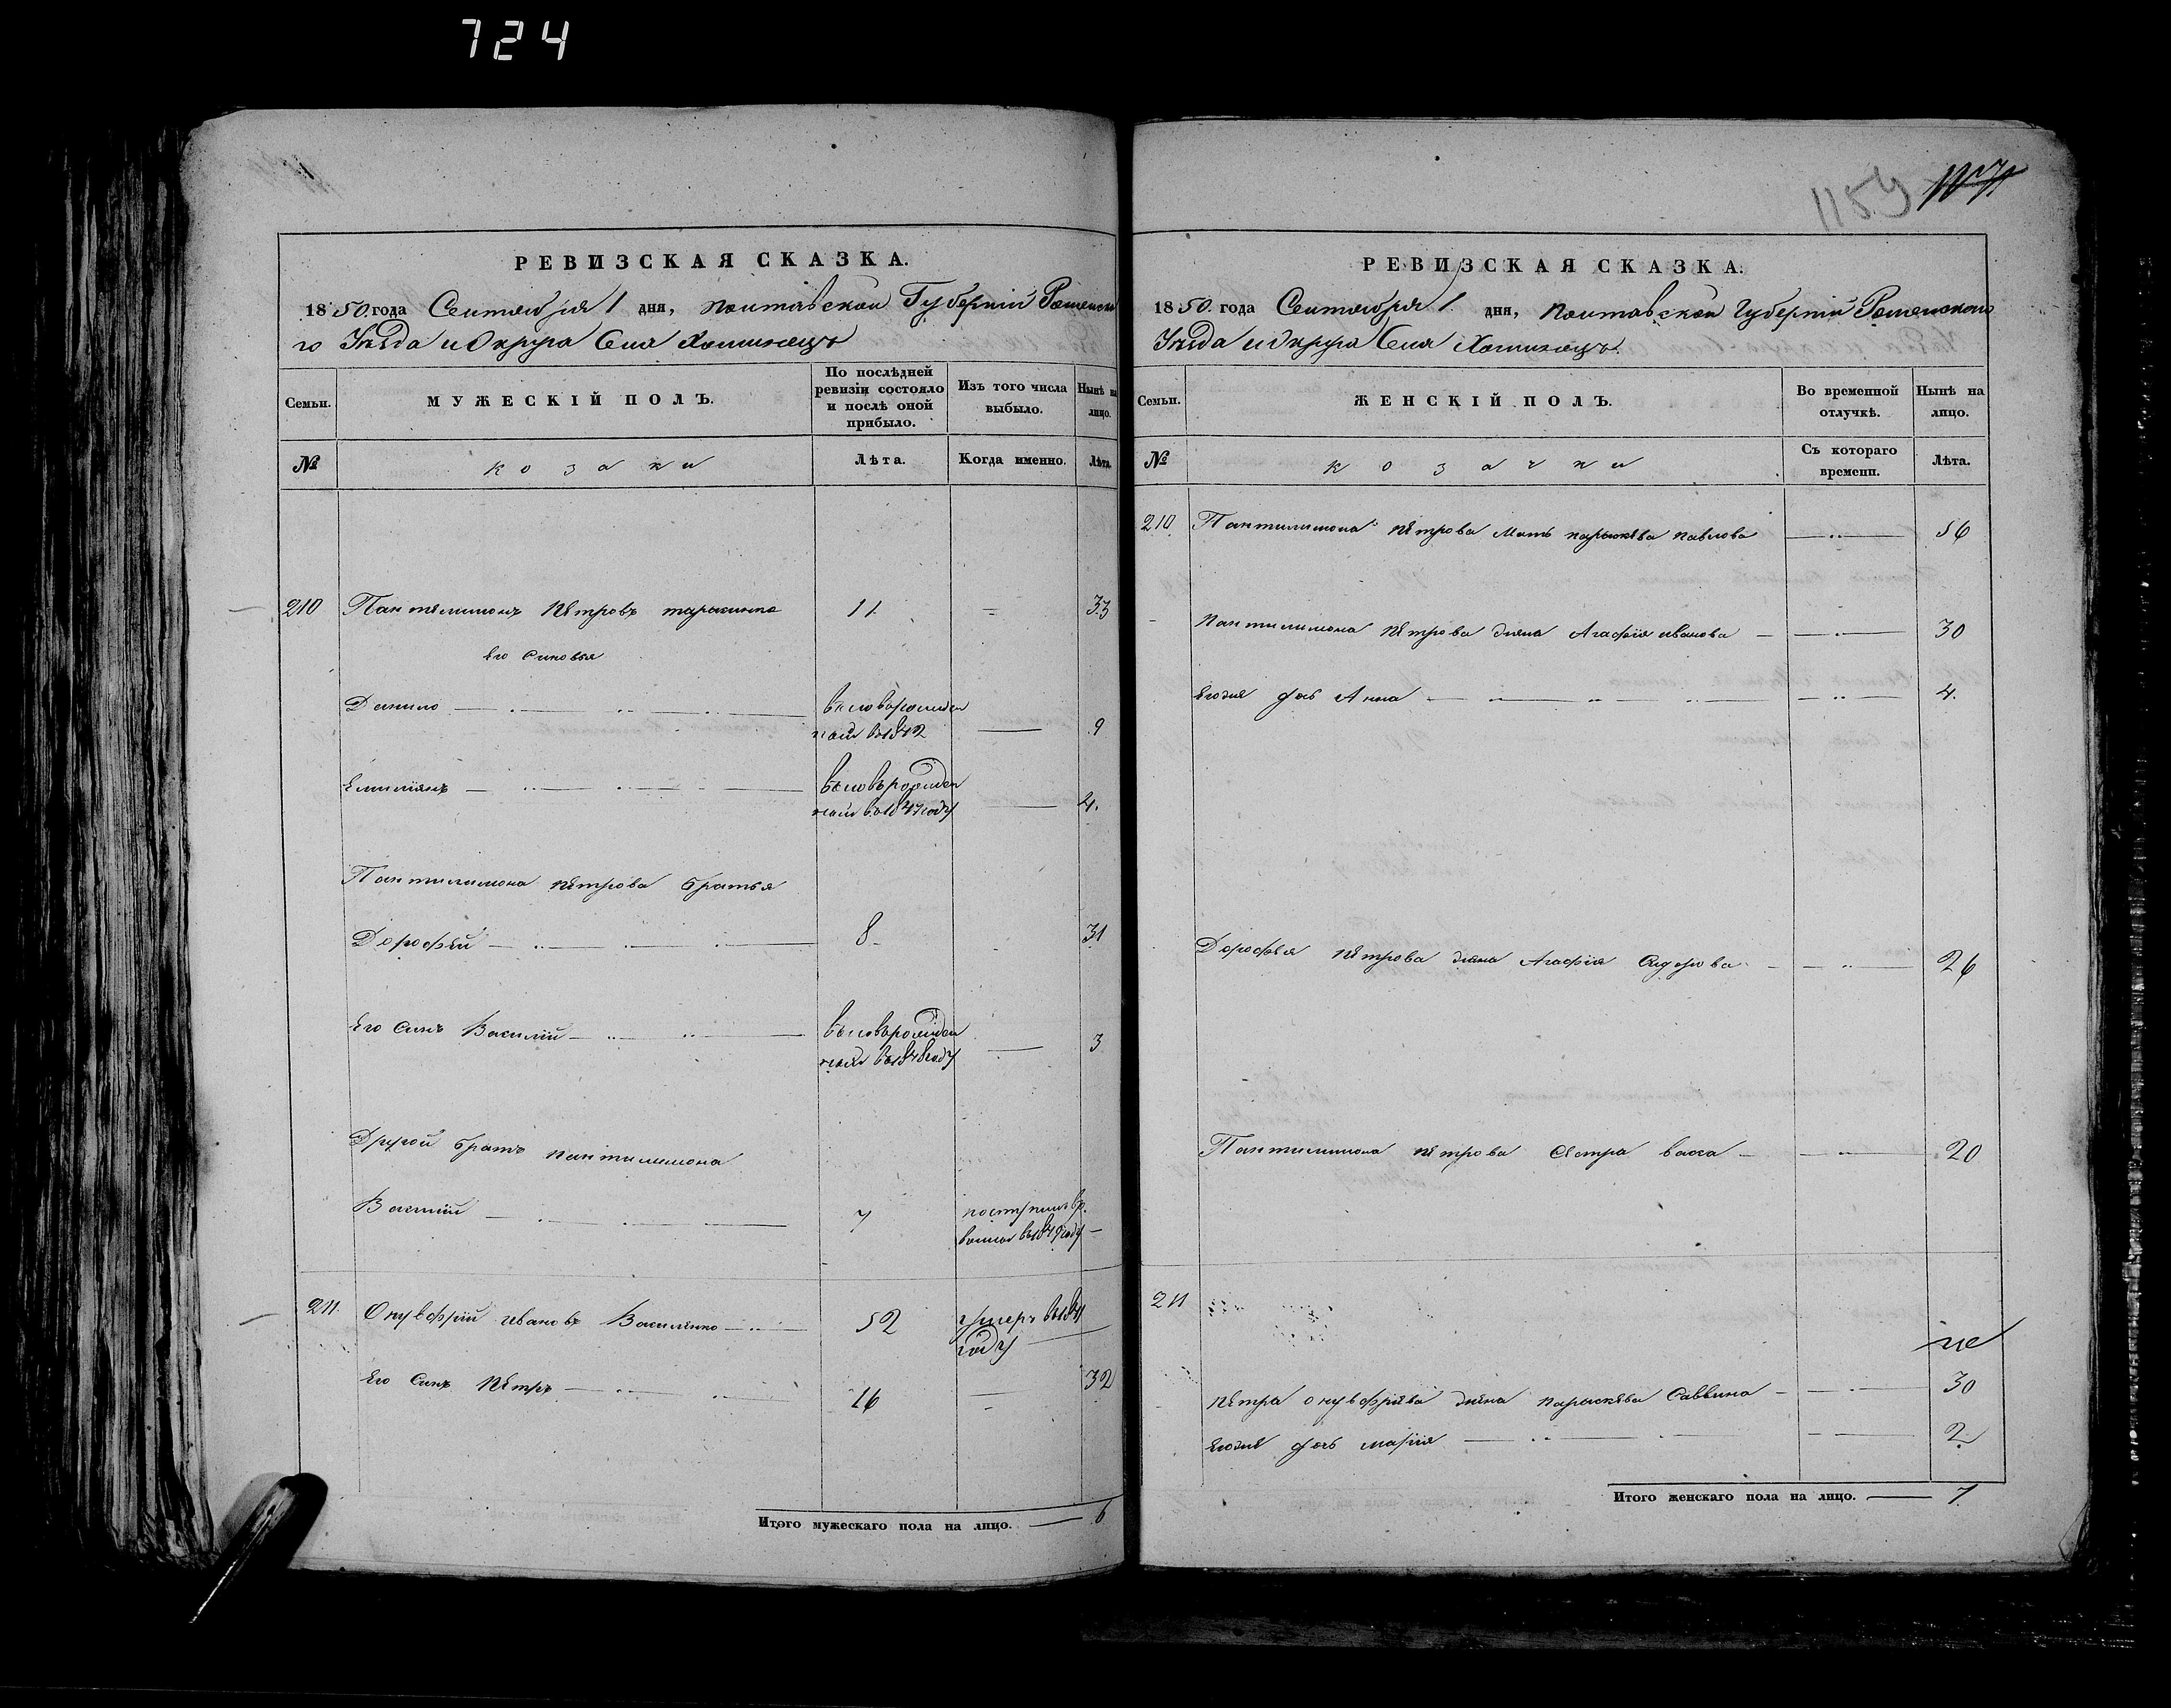 724
РЕВИЗСКАЯ СКАЗКА.
1850. года Сентября 1 дня, Полтавской Губерніи Роменска
го Уѣзда и Округа Села Хоминецъ
Семьи.
МУЖЕСКІЙ ПОЛЪ.
По послѣдней ревизіи состояло и послѣ оной прибыло.
Изъ того числа выбыло.
Нынѣ на лицо.
№
козаки
Лѣта.
Когда именно.
Лѣта.
210 Пантелимонъ Пѣтровъ 11 33
Его Синовья
Данило новорожден
ной въ 1842 9
Емилiянъ новорожден
ной въ 1847 году 4.
Пантилимона Пѣтрова братья
Дорофѣй 8 31
Его Синъ Василій новорожден
ной въ 1848 году 3
Другой братъ Пантилимона
Василій 7 поступилъ въ
1849 году
211. Онуфрій Ивановъ Василенко 52 умеръ въ
году
Его Синъ Пѣтръ 16 32
Итого мужескаго пола на лицо. 6
1159
РЕВИЗСКАЯ СКАЗКА.
1850. года Сентября 1. дня, Полтавской Губерніи Роменского
Уѣзда и Округа Села Хоминецъ.
Семьи.
ЖЕНСКІЙ ПОЛЪ.
Во временной отлучкѣ.
Нынѣ на лицо.
№
козачки
Съ котораго времени.
Лѣта.
210 Пантилимона Пѣтрова Мать параскѣва павлова 56
Пантилимона Пѣтрова жена Агафія иванова 30
Егоже дочь Анна 4.
Дорофѣя Пѣтрова жена Агафія Сидорова 26
Пантилимона Пѣтрова Сѣстра васса 20
211
Пѣтра онуфріева жена параскѣва Саввина 30
Егоже дочь марія 2
Итого женскаго пола на лицо. 7